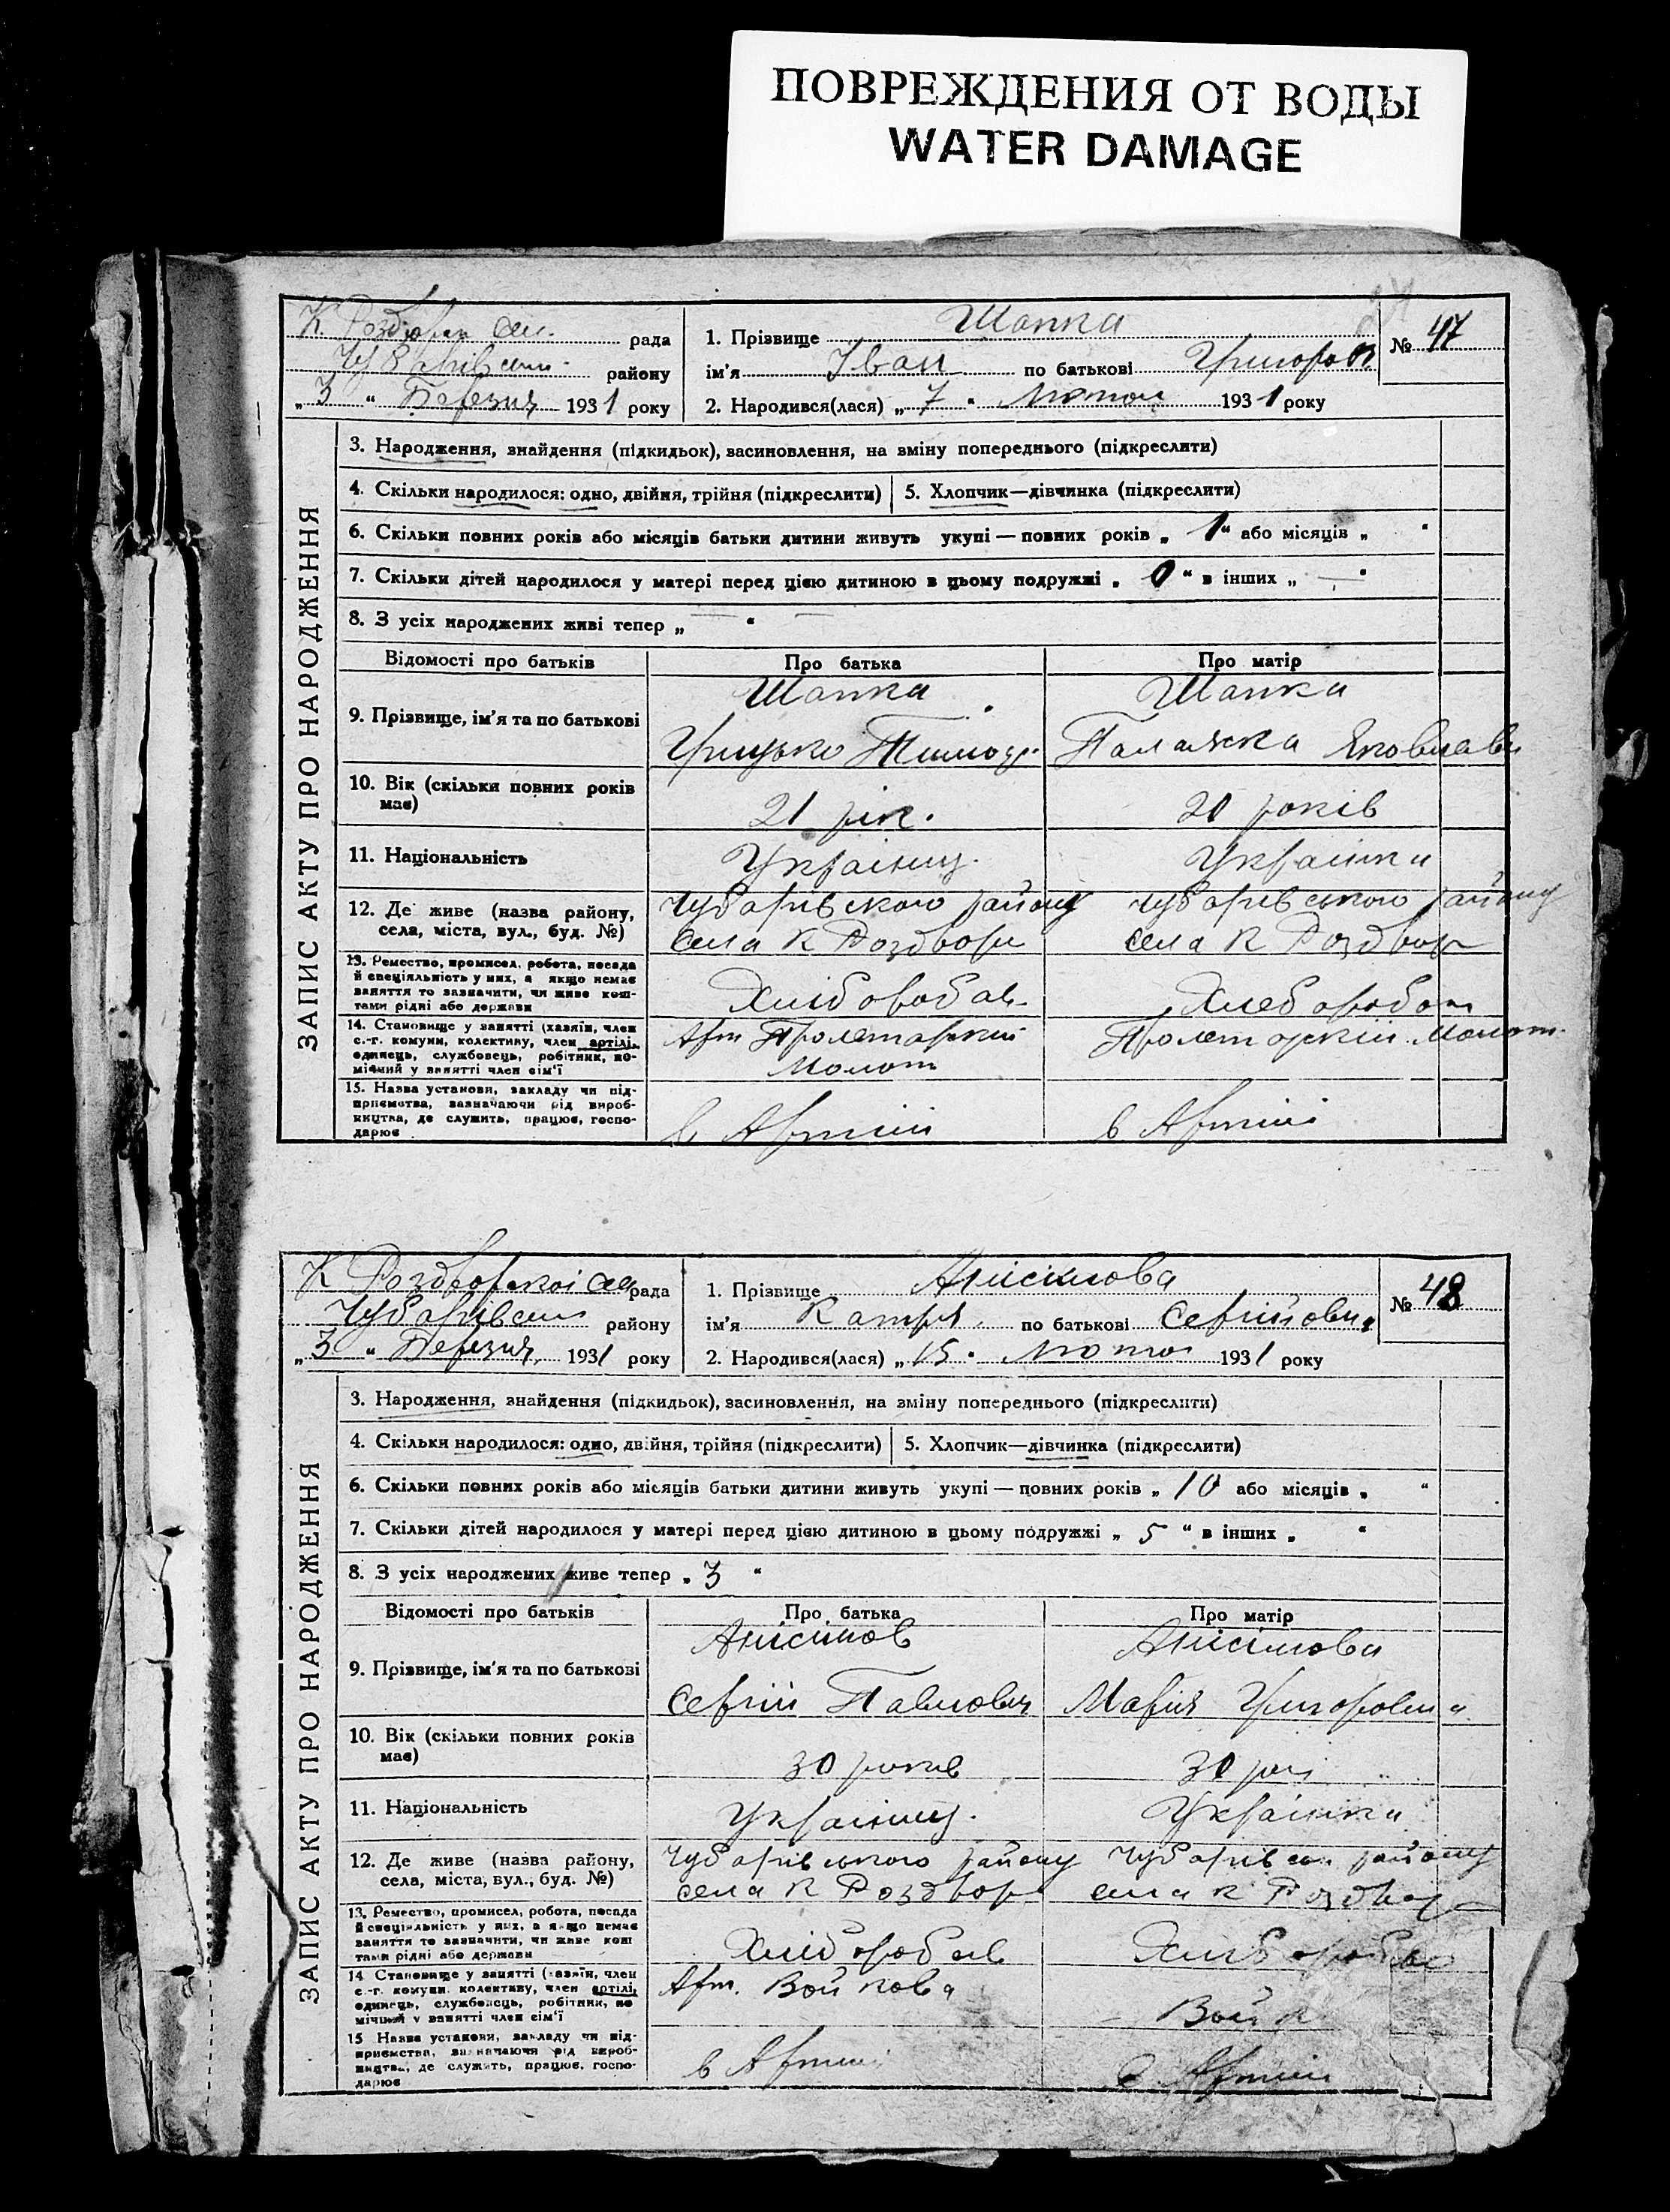 ПОВРЕЖДЕНИЯ ОТ ВОДЫ
WATER DAMAGE
рада
району
„ 3 “ Березня 1931 року
1. Прізвище Шапка
ім'я Іван по батькові Григоров
2. Народився(лася) „ 7 “ 1931 року
№ 47
ЗАПИС АКТУ ПРО НАРОДЖЕННЯ
3. Народження, знайдення (підкидьок), засиновлення, на зміну попереднього (підкреслити)
4. Скільки народилося: одно, двійня, трійня (підкреслити)
5. Хлопчик—дівчинка (підкреслити)
6. Скільки повних років або місяців батьки дитини живуть укупі — повних років „ 1 “ або місяців „ “
7. Скільки дітей народилося у матері перед цією дитиною в цьому подружжі „ 0 “ в інших „ — “
8. З усіх народжених живі тепер „ — “
Відомості про батьків
Про батька
Про матір
9. Прізвище, ім'я та по батькові
Шапка
Грицько
Шапка
Палажка
10. Вік (скільки повних років
має)
21 рік.
20 років
11. Національність
Українец.
Українка
12. Де живе (назва району,
села, міста, вул., буд. №)
Чубарівского району
села К Роздори
Чубарівського району
села К Роздор
13. Ремество, промисел, робота, посада
й спеціяльність у них, а якщо немає
заняття то зазначити, чи живе кош-
тами рідні або держави
Хлібороб
Хлебороб
14. Становище у занятті (хазяїн, член
с.-г. комуни, колективу, член артілі,
одинець, службовець, робітник, по-
мічний у занятті член сім'ї
Арт Пролетарский
Молот
Пролетарский Молот
15. Назва установи, закладу чи під-
приємства, зазначаючи рід вироб-
ництва, де служить, працює, госпо-
дарює
в Артилі
в Артилі
К рада
району
„ 3 “ Березня 1931 року
1. Прізвище Анісімова
ім'я Катря по батькові Сергійовна
2. Народився(лася) „ 15 “ 1931 року
№ 48
ЗАПИС АКТУ ПРО НАРОДЖЕННЯ
3. Народження, знайдення (підкидьок), засиновлення, на зміну попереднього (підкреслити)
4. Скільки народилося: одно, двійня, трійня (підкреслити)
5. Хлопчик—дівчинка (підкреслити)
6. Скільки повних років або місяців батьки дитини живуть укупі — повних років „ 10 або місяців „ “
7. Скільки дітей народилося у матері перед цією дитиною в цьому подружжі „ 5 “ в інших „ “
8. З усіх народжених живе тепер „ 3 “
Відомості про батьків
Про батька
Про матір
9. Прізвище, ім'я та по батькові
Анісімов
Сергій Павлович
Анісімова
Марія Григоровна
10. Вік (скільки повних років
має)
30 років
30
11. Національність
Українец.
Українка
12. Де живе (назва району,
села, міста, вул., буд. №)
Чубарівського району
села К Роздор
району
села К Роздор
13. Ремество, промисел, робота, посада
й спеціяльність у них, а якщо немає
заняття то зазначити, чи живе кош
тами рідні або держави
Хлібороб
14. Становище у занятті (хазяїн, член
с.-г. комуни, колективу, член артілі,
одинець, службовець, робітник, по
мічний у занятті член сім'ї
Арт. Войкова
15 Назва установи, закладу чи під-
приємства, зазначаючи рід вироб-
ництва, де служить, працює, госпо-
дарює
в Артилі
в Артилі